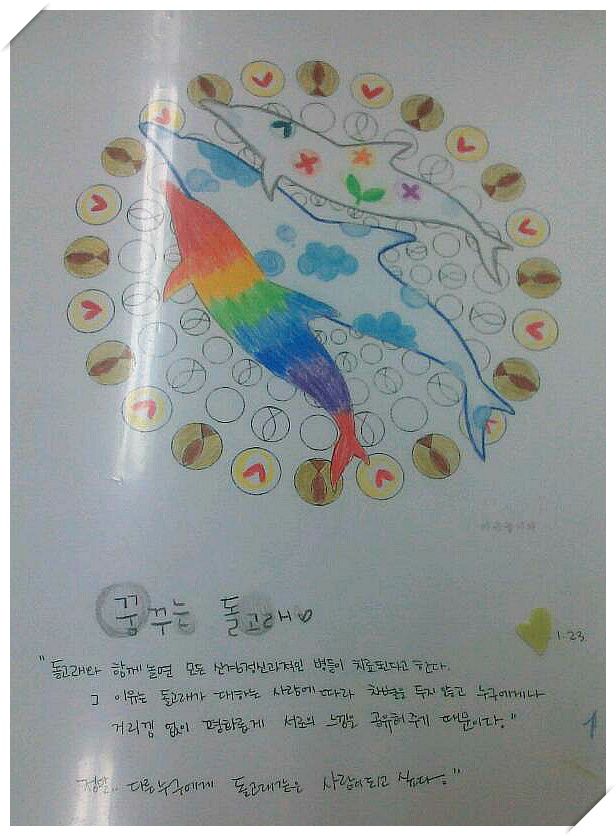 꿈꾸는 돌고래♡
1.23.
"돌고래와 함께 놀면 모든 신경정신과적인 병들이 치료된다고 한다.
그 이유는 돌고래가 대하는 사람에 따라 차별을 두지 않고 누구에게나
거리낌 없이 평화롭게 서로의 느낌을 공유해주기 때문이다."
정말.. 다른누구에게 돌고래같은 사람이되고 싶다."